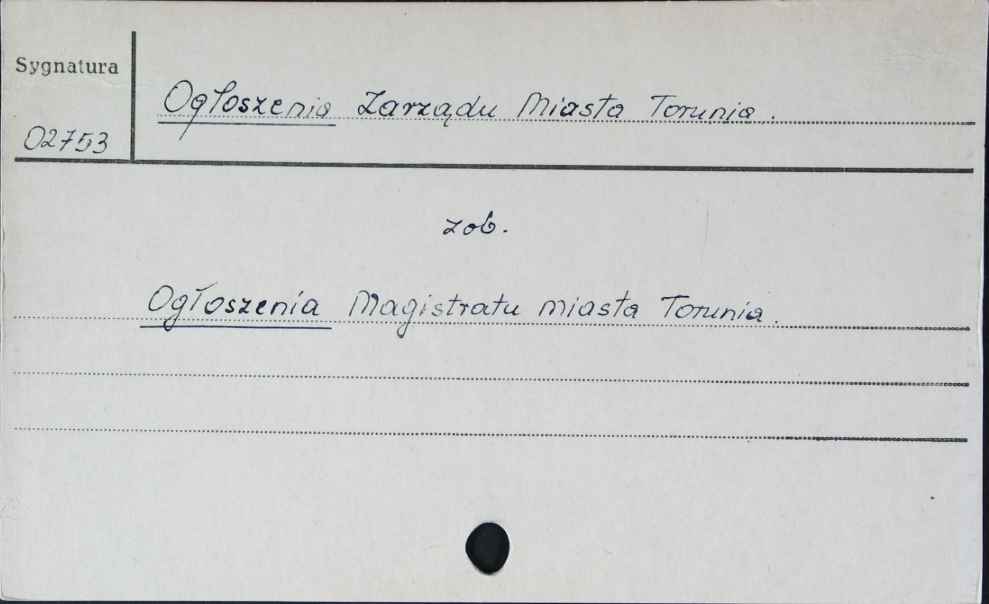 Sygnatura
Ogłoszenia Zarządu Miasta Torunia.
02753
zob.
Ogłoszenia Magistratu miasta Torunia.